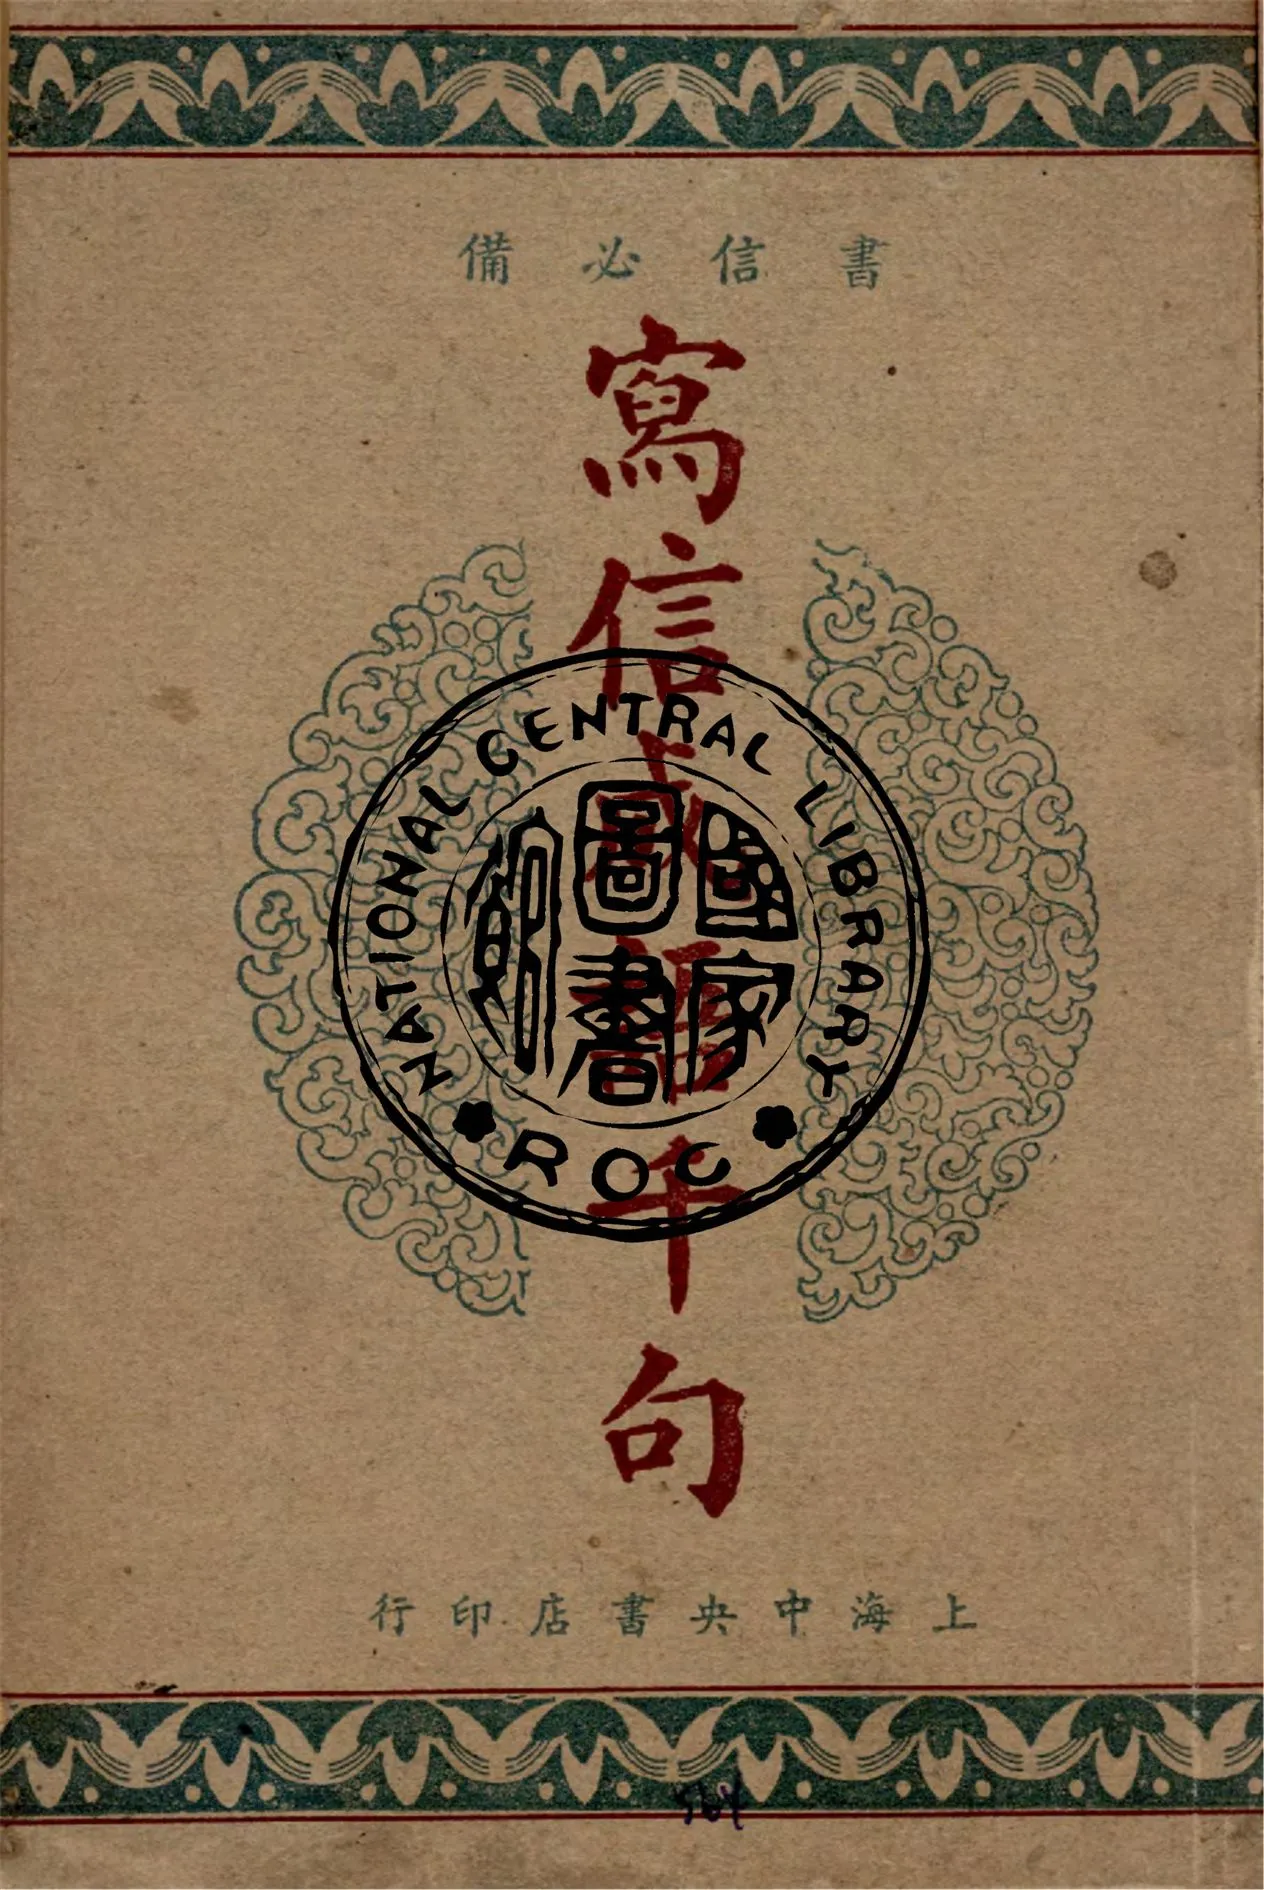 書信必備
寫信成語千句
NATIONAL CENTRAL LIBRARY
國家圖書館
ROC
上海中央書店印行
564